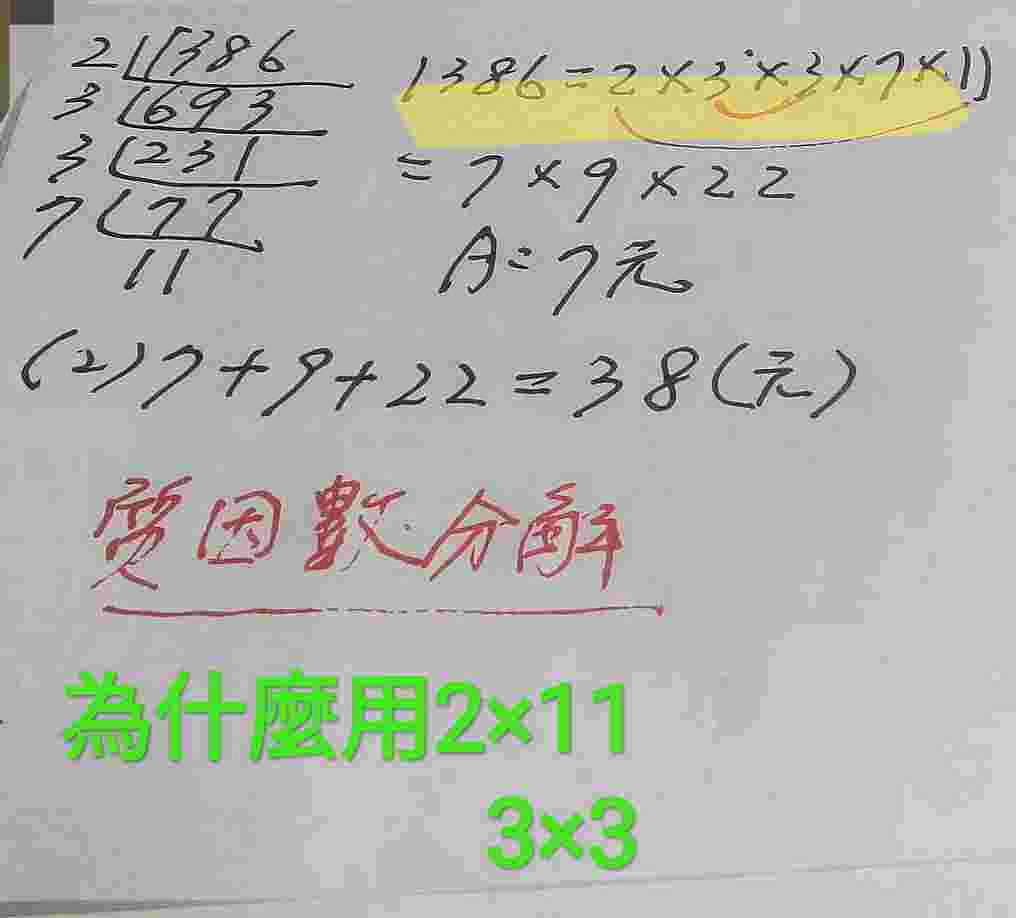 2 1386
3 693
3 231
7 77
11
1386=2×3×3×7×11
=7×9×22
A=7元
(2)7+9+22=38(元)
質因數分解
為什麼用2×11
3×3